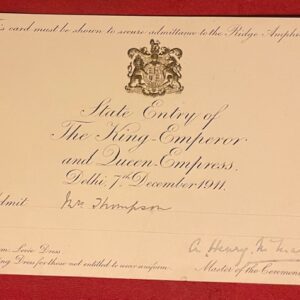 s card must be shown to secure admittance to the Ridge Amph
State Entry of
The King-Emperor
and Queen-Empress.
Delhi, 7th December 1911.
dmit Mrs Thompson
m: Levée Dress.
ing Dress for those not entitled to wear uniform.
Henry
Master of the Ceremon